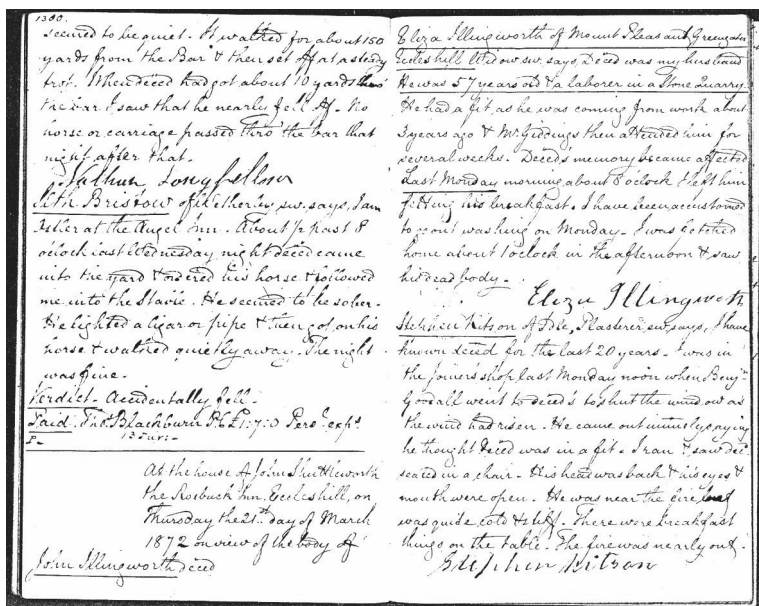 1300.
seemed to be quiet. It walked for about 150
yards from the Bar & then set off at a steady
trot. When deced had got about 10 yards thro'
the bar I saw that he nearly fell off. No
horse or carriage passed thro' the bar that
night after that.
Nathan Longfellow
Seth Bristow of Netherley, sw. says, I am
Ostler at the Angel Inn. About ½ past 8
o'clock last Wednesday night deced came
into the yard & ordered his horse & followed
me into the Stable. He seemed to be sober.
He lighted a cigar or pipe & then got on his
horse & walked quietly away. The night
was fine.
Verdict - Accidentally fell.
Paid. Thos. Blackburn P.C. £1:7:0
13 Jur:-
At the house of John Shuttleworth
the Roebuck Inn, Eccleshill, on
Thursday the 21st day of March
1872 on view of the body of
John Illingworth deced
Eliza Illingworth of Mount Pleasant Greengates
Eccleshill Widow sw. says, Deced was my husband
He was 57 years old & a laborer in a Stone Quarry.
He had a fit as he was coming from work about
3 years ago & Mr. Giddings then attended him for
several weeks. Deced's memory became affected
Last Monday morning about 8 o'clock I left him
getting his breakfast. I have been accustomed
to go out washing on Monday. I was fetched
home about 1 o'clock in the afternoon & saw
his dead body.
Eliza Illingworth
Stephen Kitson of Idle, Plasterer, sw. says, I have
known deced for the last 20 years. I was in
the joiner's shop last Monday noon when Benjn.
Goodall went to deced's to shut the window as
the wind had risen. He came out saying
he thought Deced was in a fit. I ran & saw decd
seated in a chair. His head was back & his eyes &
mouth were open. He was near the fire
was quite cold & stiff. There were breakfast
things on the table. The fire was nearly out.
Stephen Kitson